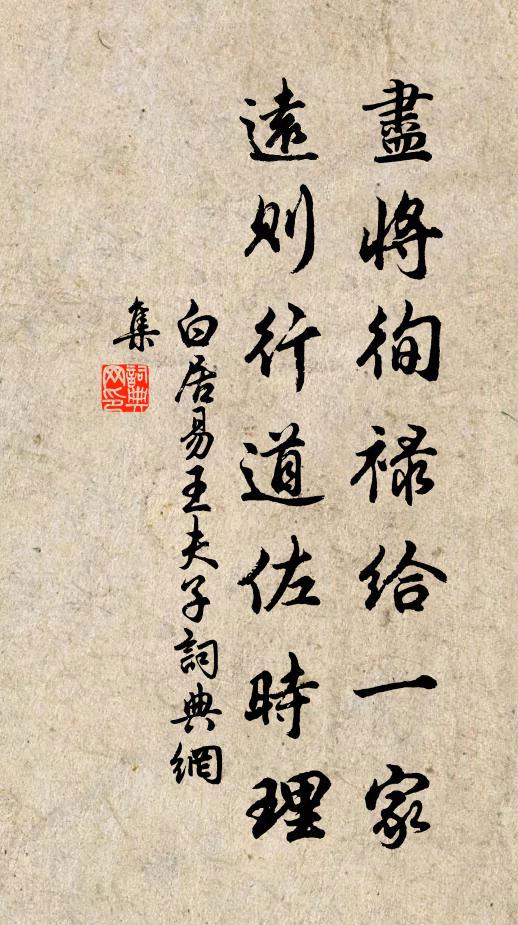 盡將徇禄給一家
遠則行道佐時理
白居易王夫子詞典網
集
詞典
网印